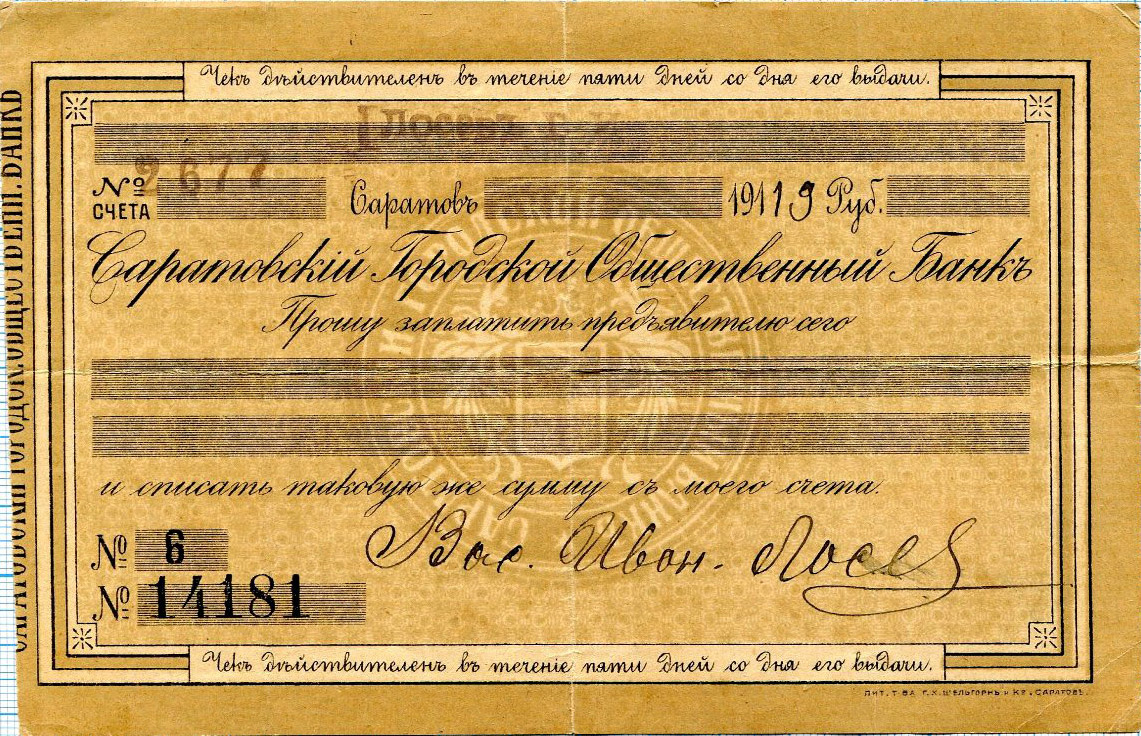 Чекъ дѣйствителенъ въ теченіе пяти дней со дня его выдачи.
Лосевъ
№ 2677
СЧЕТА
Саратовъ 19119 Руб.
Саратовскій Городской Общественный Банкъ
Прошу заплатить предъявителю сего
и списать таковую же сумму съ моего счета.
№ 6
Вас. Иван. Лосев
№ 14181
Чекъ дѣйствителенъ въ теченіе пяти дней со дня его выдачи.
ЛИТ. Т-ВА Г.Х. ШЕЛЬГОРНЪ и Кº, САРАТОВЪ.